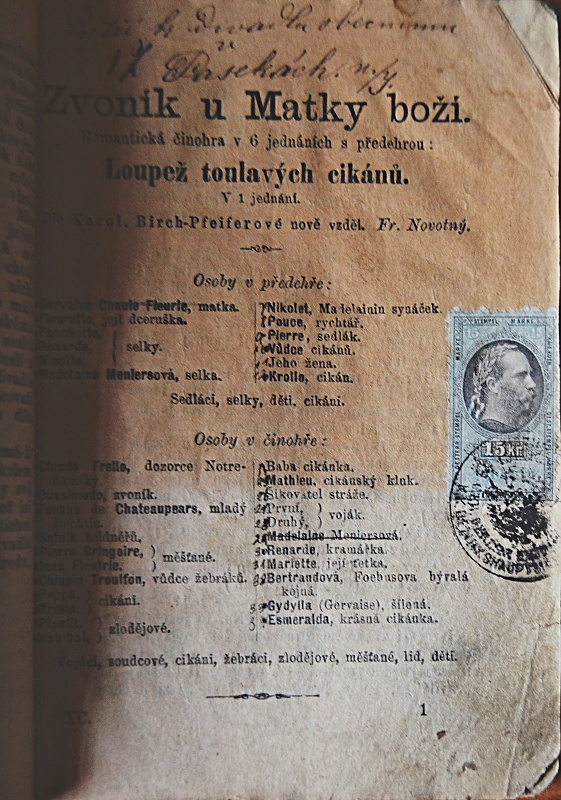 k divadlu obecnímu
v Pasekách n/J.
Zvoník u Matky boží.
Romantická činohra v 6 jednáních s předehrou:
Loupež toulavých cikánů.
V 1 jednání.
Dle Karol. Birch-Pfeiferové nově vzděl. Fr. Novotný.
Osoby v předehře:
Gervaise Chante Fleurie, matka.
její dceruška.
selky.
Madelaine Meniersová, selka.
Nikolet, Madelainin synáček.
Pouce, rychtář.
Pierre, sedlák.
Vůdce cikánů.
Jeho žena.
Krollo, cikán.
Sedláci, selky, děti, cikáni.
Osoby v činohře:
Claude Frollo, dozorce Notre-
zvoník.
de Chateaupears, mladý
Pierre Gringoire,
měšťané.
Clopin Troulfon, vůdce žebráků.
cikáni.
zlodějové.
Baba cikánka.
Mathieu, cikánský kluk.
Šikovatel stráže.
První,
Druhý,
voják.
Madelaine Meniersová,
Renarde, kramářka.
Mariette, její tetka.
Bertrandová, Foebusova bývalá
kojná.
Gydylla (Gervaise), šílená.
Esmeralda, krásná cikánka.
Vojáci, soudcové, cikáni, žebráci, zlodějové, měšťané, lid, děti.
XC.
1
15 Kr